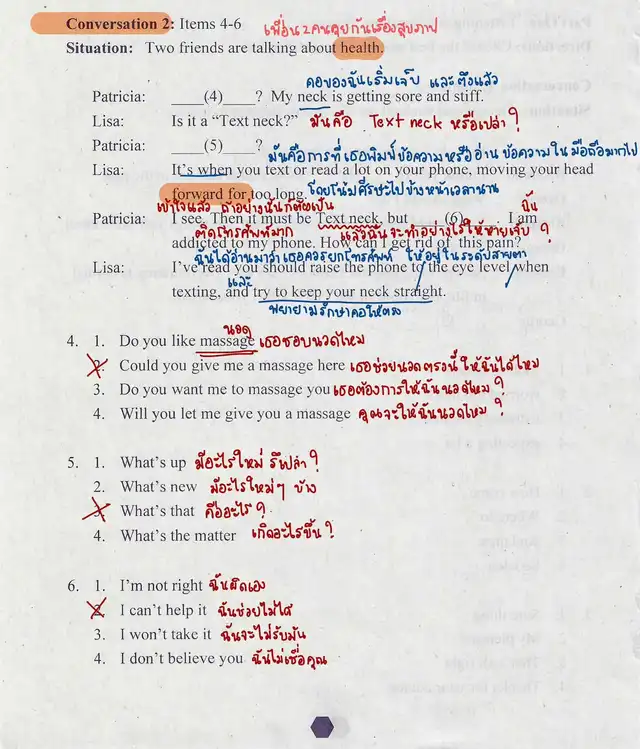 Conversation 2: Items 4-6 เพื่อน 2 คนคุยกันเรื่องสุขภาพ
Situation: Two friends are talking about health.
คอของฉันเริ่มเจ็บ และตึงแล้ว
Patricia: ____(4)____? My neck is getting sore and stiff.
Lisa: Is it a “Text neck?” มันคือ Text neck หรือเปล่า?
Patricia: ____(5)____?
มันคือการที่เธอพิมพ์ข้อความหรืออ่านข้อความในมือถือมากไป
Lisa: It’s when you text or read a lot on your phone, moving your head
forward for too long. โดยโน้มศีรษะไปข้างหน้าเวลานาน
เข้าใจแล้ว ถ้าอย่างนั้นก็ต้องเป็น ฉัน
Patricia: I see. Then it must be Text neck, but ____(6)____. I am
ติดโทรศัพท์มาก แล้วฉันจะทำอย่างไรให้หายเจ็บ?
addicted to my phone. How can I get rid of this pain?
ฉันได้อ่านมาว่า เธอควรยกโทรศัพท์ ให้อยู่ในระดับสายตา
Lisa: I’ve read you should raise the phone to the eye level when
และ
texting, and try to keep your neck straight.
พยายามรักษาคอให้ตรง
นวด
4. 1. Do you like massage เธอชอบนวดไหม
2. Could you give me a massage here เธอช่วยนวดตรงนี้ให้ฉันได้ไหม
3. Do you want me to massage you เธอต้องการให้ฉันนวดไหม?
4. Will you let me give you a massage คุณจะให้ฉันนวดไหม?
5. 1. What’s up มีอะไรใหม่ รึเปล่า?
2. What’s new มีอะไรใหม่ๆ บ้าง
3. What’s that คืออะไร?
4. What’s the matter เกิดอะไรขึ้น?
6. 1. I’m not right ฉันผิดเอง
2. I can’t help it ฉันช่วยไม่ได้
3. I won’t take it ฉันจะไม่รับมัน
4. I don’t believe you ฉันไม่เชื่อคุณ